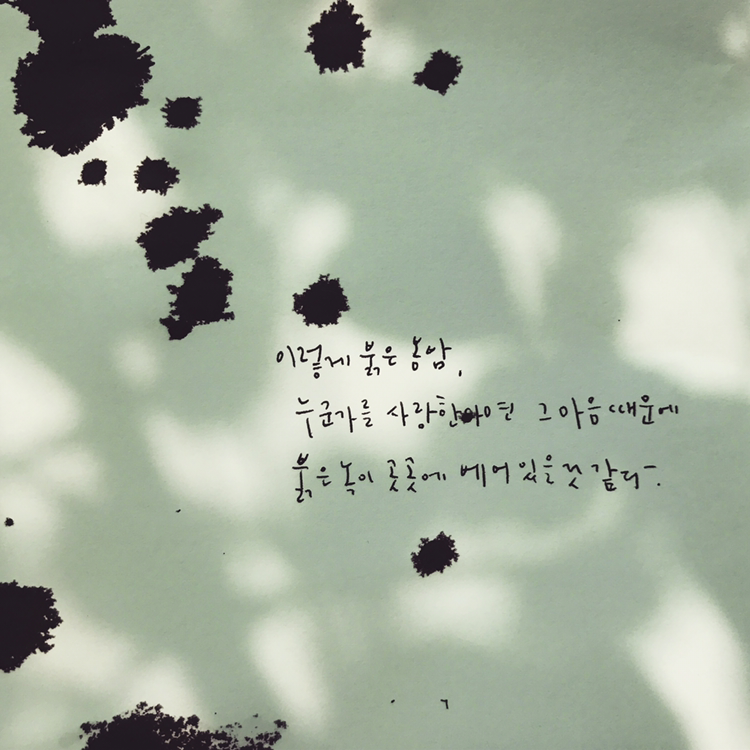 이렇게 붉은 몽암,
누군가를 사랑한다면 그 마음 때문에
붉은 녹이 곳곳에 베어있을것 같다.